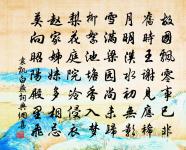 故國飄零事已非
舊時王謝見應稀
月明漢水初無影
雪滿梁園尚未歸
柳絮池塘香入夢
梨花庭院冷侵衣
趙家姊妹多相忌
莫向昭陽殿裏飛
袁凱白燕詞典網書